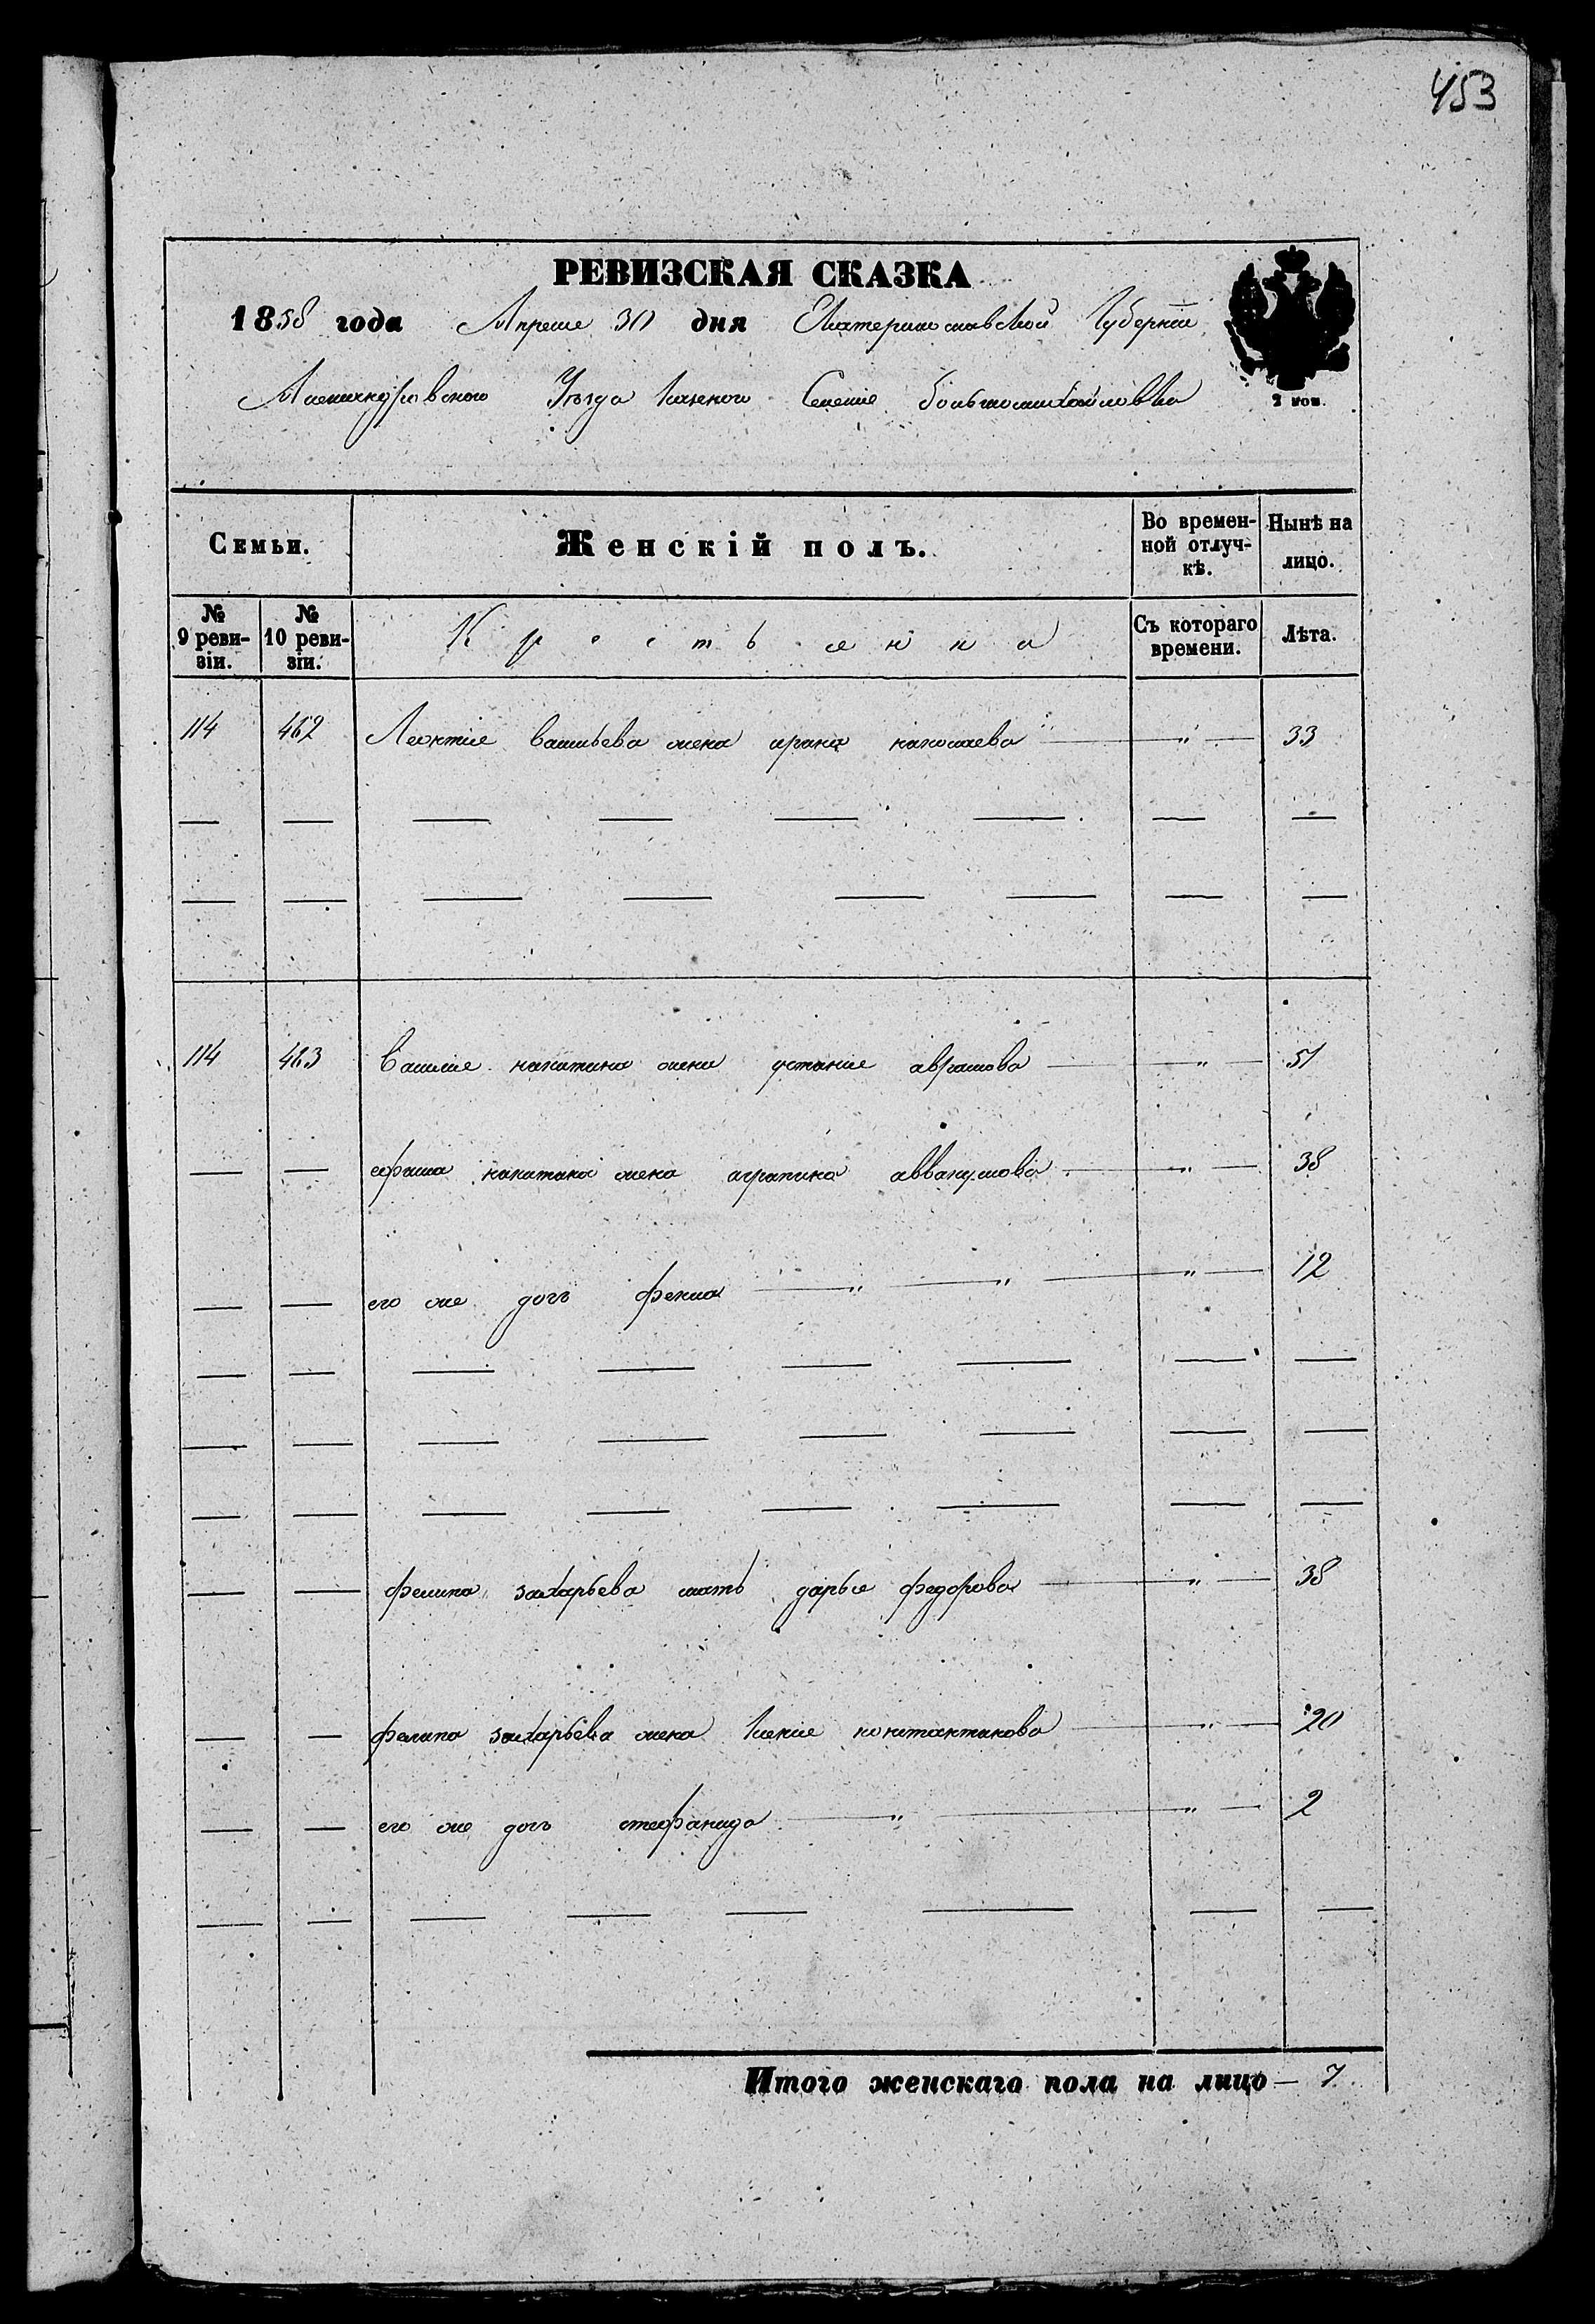 453
РЕВИЗСКАЯ СКАЗКА
1858 года Апреля 30 дня Екатеринославской Губернии
Александровского Уезда Казеного Селения большомихайловка
2 коп.
Семьи. Женскій полъ. Во времен-ной отлуч-кѣ. Нынѣ на лицо.
№ 9 реви-зіи. № 10 реви-зіи. Крестьянка Съ котораго времени. Лѣта.
114 462 Леонтия васильева жена ирина николаева — " — 33
— — — — — — — —
— — — — — — — —
114 463 василия никитина жена устиния аврамова — " — 51
— — ефима никитина жена агрипина аввакумова — " — 38
— — его же дочь фекла — " — " — " — 12
— — — — — — — —
— — — — — — — —
— — — — — — — —
— — филипа захарьева мать дарья федорова — " — 38
— — филипа захарьева жена ксения константинова — " — 20
— — его же дочь стефанида — " — " — 2
— — — — — — — —
Итого женскаго пола на лицо — 7.